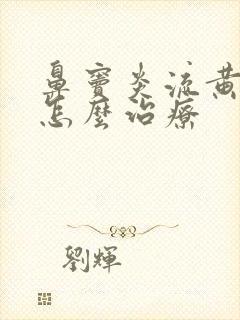 鼻竇炎流黃
怎麼治療
劉輝